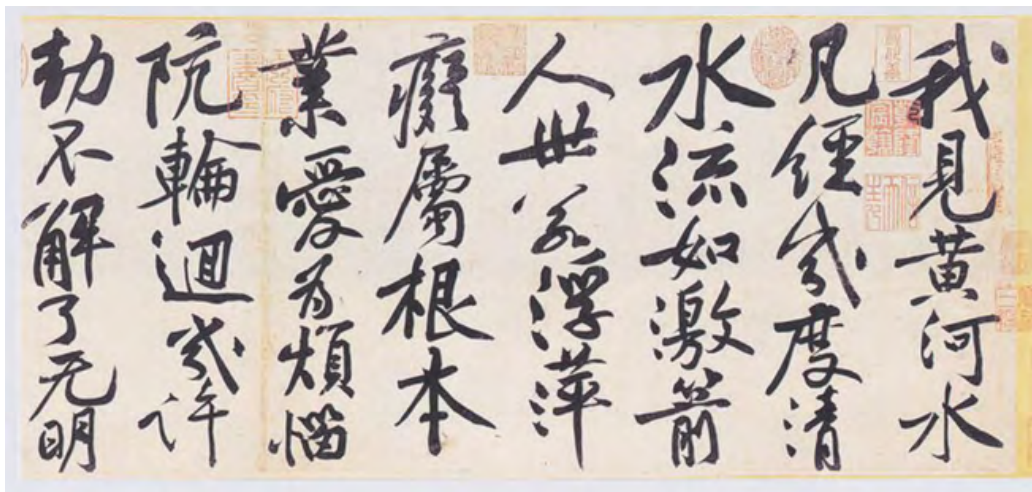 我見黄河水
凡經幾度清
水流如激箭
人世若浮萍
癡屬根本
業愛為煩惱
阬輪迴幾許
劫不解了无明